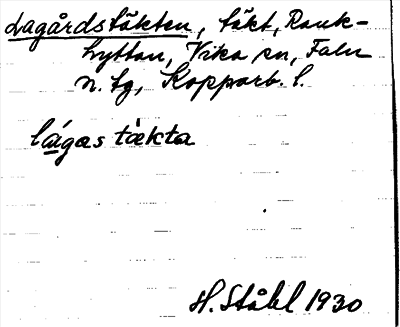 Lagårdstäkten, täkt, Rank-
hyttan, Vika sn, Falu
n. tg, Kopparb. l.
lágas tækta
H. Ståhl 1930